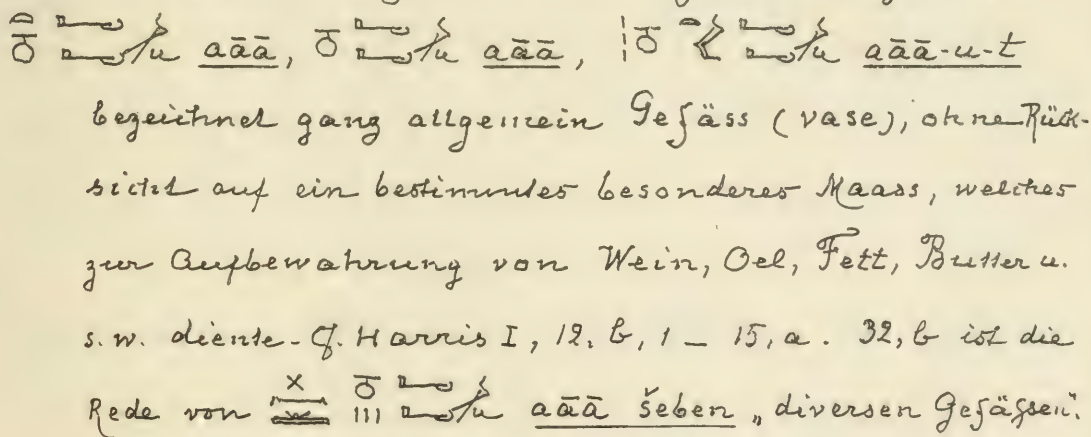 aāā, aāā, aāā-u-t
bezeichnet ganz allgemein Gefäss (vase), ohne Rück-
sicht auf ein bestimmtes besonderes Maass, welches
zur Aufbewahrung von Wein, Oel, Fett, Butter u.
s. w. diente. Cf. Harris I, 12, b, 1 — 15, a. 32, b ist die
Rede von aāā šeben „diversen Gefäßen".